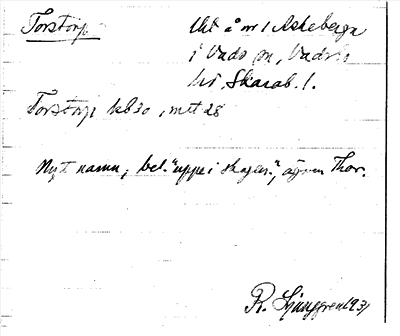 Torstorp
Utt å nr 1 Askeberga
i Vads sn, Vadsbo
hd, Skarab. l.
Torstorp kb 30, mtt 28
Nytt namn, bel. "uppe i skogen", ägaren Thor.
R. Ljunggren 1931